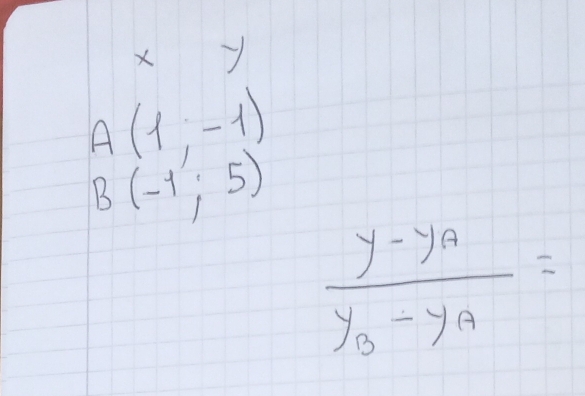 x y
A (1 ; -1)
B (-1 ; 5)
y - yA
yB - yA
=